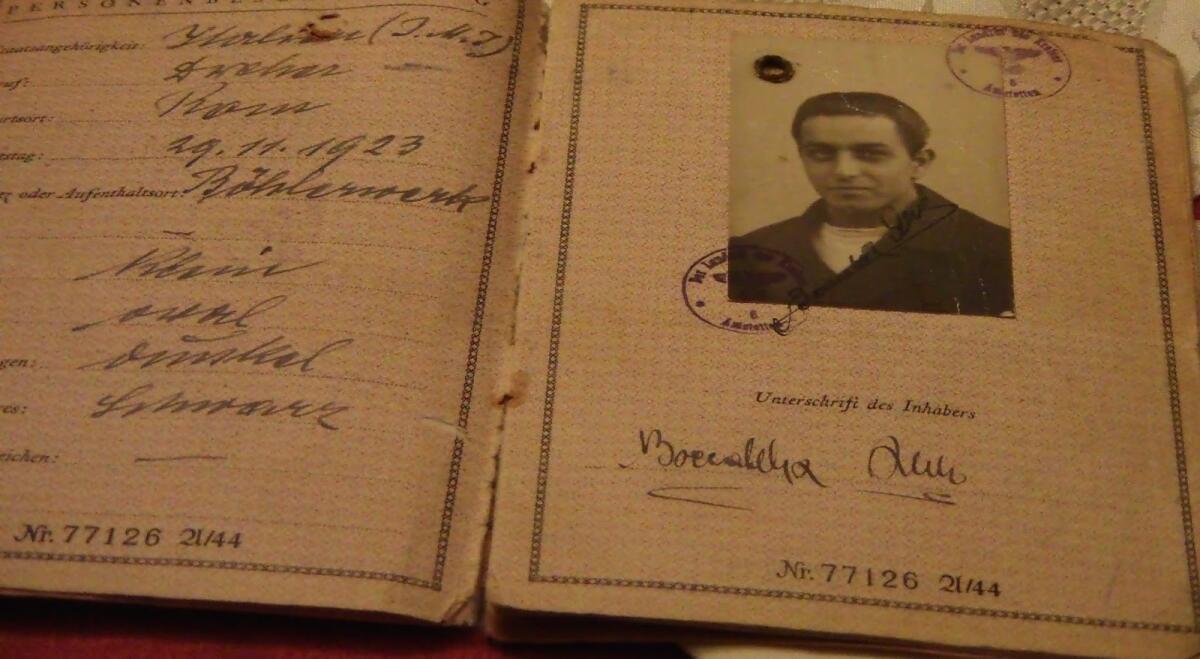 PERSONENBES
Staatsangehörigkeit: Italien (I.M.I)
uf: Dreher
urtsort: Rom
stag: 29.11.1923
tz oder Aufenthaltsort: Böhlerwerk
klein
oval
gen: dunkel
es: Schwarz
eichen: —
Nr. 77126 21/44
Der Landrat des Kreises
6
Amstetten
Der Landrat des Kreises
6
Amstetten
Unterschrift des Inhabers
Nr. 77126 21/44